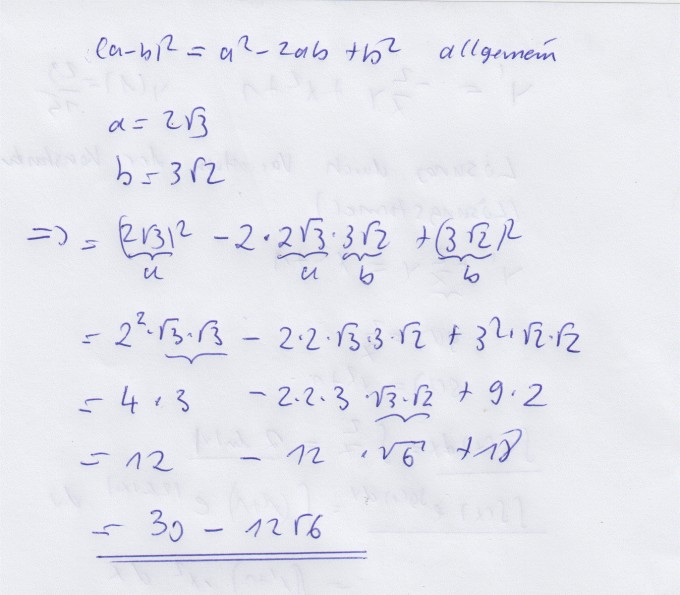 (a-b)² = a² - 2ab + b² allgemein
a = 2√3
b = 3√2
=> = (2√3)² - 2·2√3·3√2 + (3√2)²
a a b b
= 2²·√3·√3 - 2·2·√3·3·√2 + 3²·√2·√2
= 4·3 - 2·2·3·√3·√2 + 9·2
= 12 - 12·√6 + 18
= 30 - 12√6